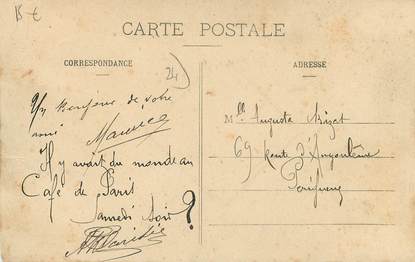 15 €
CARTE POSTALE
CORRESPONDANCE
ADRESSE
24
Un bonjour de votre
ami
Maurice
Il y avait du monde au
Café de Paris
Samedi soir ?
Mlle Augusta Bizet
69 Route d'Angoulême
Périgueux